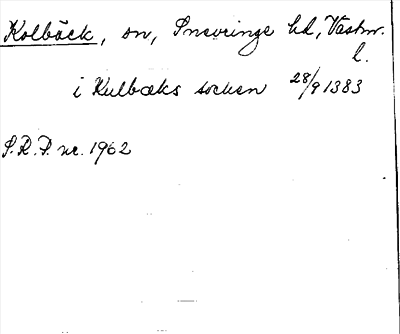 Kolbäck, sn, Snevringe hd, Västm.
l.
i Kulbæks socken 28/9 1383
S.R.P. nr. 1962